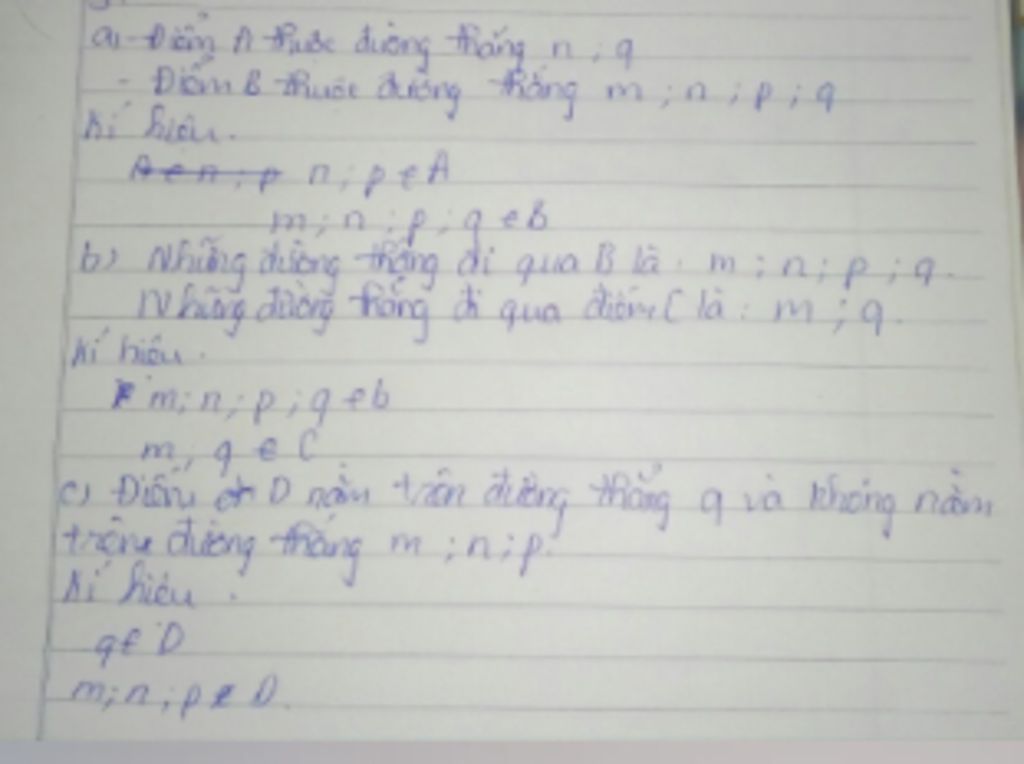 a) - Điểm A thuộc đường thẳng n ; q
- Điểm B thuộc đường thẳng m ; n ; p ; q
Kí hiệu.
A ∈ n ; p n ; p ∈ A
m ; n ; p ; q ∈ B
b) Những đường thẳng đi qua B là : m ; n ; p ; q.
Những đường thẳng đi qua điểm C là : m ; q.
Kí hiệu.
m ; n ; p ; q ∈ b
m, q ∈ C
c) Điểm D nằm trên đường thẳng q và không nằm
trên đường thẳng m ; n ; p.
Kí hiệu.
q ∈ D
m ; n ; p ∉ D.